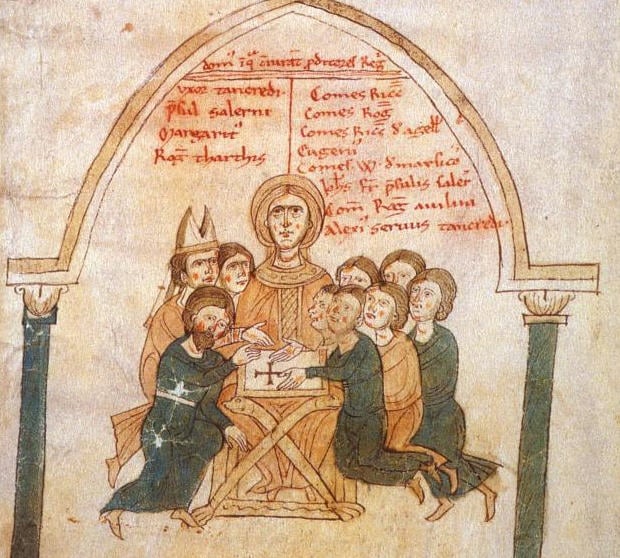 uxor tancredi
p̄sul salerni
Margarit᾽
Rog̅ tharthis
Comes Ricc
Comes Rog̅
Comes Ricc᾽ d᾽ agell̅
Eugeni᾽
Comes W᾽ d᾽marsico
Ioh̅s fr̅ p̄sulis saler̅
Com̅ Rog̅ auilini
Alexi᾽ seruus tancredi